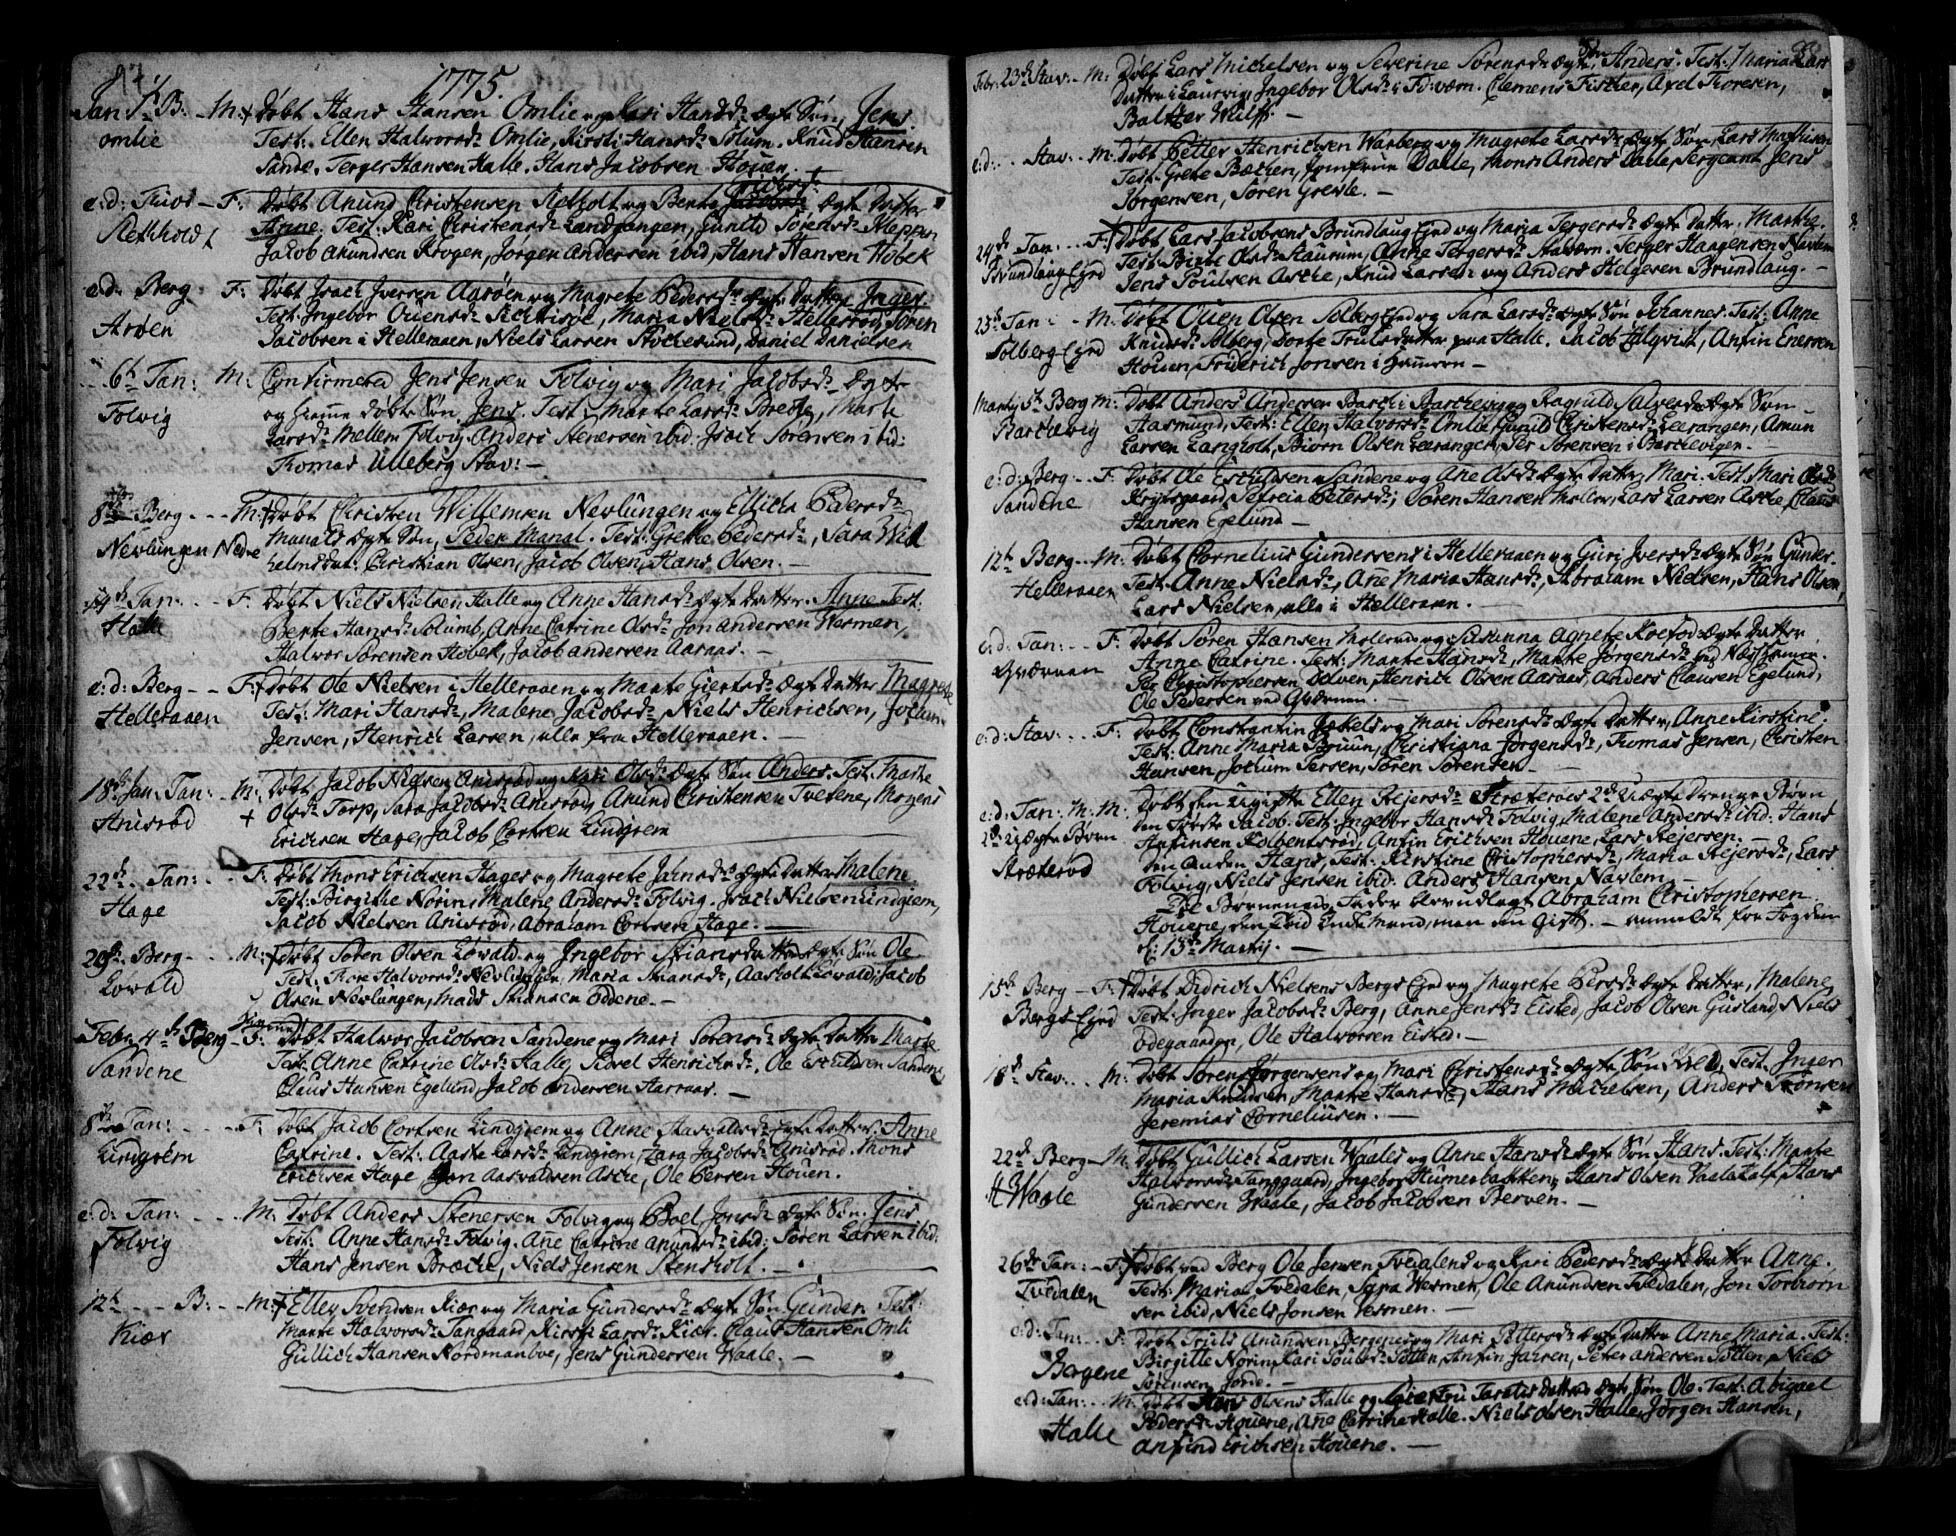 97.
1775.
Jan: 1. B: - M: + Døbt Hans Hansen Omlie og Kari Hansd: ægte Søn, Jens.
Omlie Test: Ellen Halvorsd: Omlie, Kirsti Hansd: Solum. Knud Hansen
Sande. Jerger Hansen Halle. Hans Jacobsen Houen.
e:d: - F: Døbt Anund Christensen og Berte ægte Datter
Anne. Test: Kari Christensd: Landgangen, Gunild Sørensd: Kleppen
Jacob Anundsen Krogen, Jørgen Andersen ibid, Hans Hansen Høbek
e:d: Berg: F: Døbt Isach Iversen Aarøen og Magrete Pedersd: ægte Datter Inger.
Arøen Test: Ingebor Ouensd: Maria Nielsd: Helleraaen, Søren
Jacobsen i Helleraaen, Niels Larsen Stochesund, Daniel Danielsen
6t Jan: M: Confirmered Jens Jensen Folvig og Mari Jacobsd: ægte
Folvig og hjemme døbte Søn Jens. Test: Marte Larsd: Breche, Marte
Larsd: Mellem Folvig. Anders Stenersen ibid: Isach Sørensen ibid:
Thomas Ulleberg Stav: -
8de Berg - - - M: + Døbt Christen Willemsen Nevlungen og Ellicha Pedersd:
Nevlungen Nedre ægte Søn, Peder Manal. Test: Grethe Pedersd:, Sara Wil
helmsdat: Christian Olsen, Jacob Olsen, Hans Olsen. -
14de Jan: - - - F: Døbt Niels Nielsen Halle og Anne Hansd: ægte Datter. Anne Test:
Halle Berte Hansd: Solumb, Anne Catrine Olsd: Jon Andersen Wermen,
Halvor Sørensen Høbek, Jacob Andersen Aaraas. -
e:d: Berg - - F: + Døbt Ole Nielsen i Helleraaen og Marte Giertsd: ægte Datter Magrete
Helleraaen Test: Mari Hansd:, Malene Jacobsd:, Niels Henrichsen, Jochum
Jensen, Henrich Larsen, alle fra Helleraaen. -
18de Jan: Jan: - M: Døbt Jacob Nielsen Anisrød og Kari Olsd: ægte Søn Anders. Test: Marte
Anisrød + Olsd: Torp, Sara Jacobsd: Anisrød, Anund Christensen Tvetene, Mogens
Erichsen Hage, Jacob Cortsen Lindgrem
22de Jan: - - F: Døbt Mons Erichsen Hages og Magrete Jahnsd: ægte Datter Malene.
Hage Test: Birgitte Norin, Malene Andersd: Folvig. Isach Nielsen Lindgrem,
Jacob Nielsen Anisrød, Abraham Cortsen Hage.
29de Berg - - - M: + Døbt Søren Olsen Løwald og Ingebor Stiansdatter ægte Søn Ole
Løwald Test: Tore Halvorsd: Nevlungen, Maria Stiansd:, Aasholt Løwald, Jacob
Olsen Nevlungen, Mads Stiansen Oddene. -
Febr: 4de Berg - F: Døbt Halvor Jacobsen Sandene og Mari Sørensd: ægte Datter Marte
Sandene Test: Anne Catrine Olsd: Halle, Sissel Henrichsd:, Ole Estuldsen Sandene
Claus Hansen Egelund, Jacob Andersen Aarraas. -
8de Jan: - - - F: Døbt Jacob Cortsen Lindgrem og Anne Aasvaldsd: ægte Datter. Anne
Lindgrem Catrine. Test: Aaste Larsd: Lindgrem, Zara Jacobsd: Anisrød. Mons
Erichsen Hage, Jon Aasvaldsen Aske, Ole Persen Houen.
e:d: Jan: - - - M: Døbt Anders Stenersen Folvig og Boel Jonsd: ægte Søn: Jens
Folvig Test: Anne Hansd: Folvig. Ane Catrine Anundsd: ibid: Søren Larsen ibid:
Hans Jensen Breche, Niels Jensen Stensholt. -
12te - - - B: - - M: + Elley Svendsen Kiær og Maria Gundersd: ægte Søn Gunder Test:
Kiær Marte Halvorsd: Tangaard, Kirsti Larsd: Kiær. Claus Hansen Omli
Gullich Hansen Nordmanbye, Jens Gundersen Waale. -
98
Febr: 23de Stav: - M: Døbt Lars Michelsen og Severine Sørensd: ægte Søn Anders. Test: Maria Lars
Datter i Laurvig, Ingebor Olsd: i Fr:værn. Clemens Fischer, Axel Thoresen,
Baltzer Wulff. -
e:d: - - Stav: - M: Døbt Petter Henrichsen Warberg og Magrete Larsd: ægte Søn, Lars Mathisen
Test: Grete Bæchen, Jomfrue Dalle, Monsr Anders Dalle, Sergeant Jens
Jørgensen, Søren Grevle. -
24de Jan: - - - F: + Døbt Lars Jacobsens Brundlaug Ejed og Maria Jergersd: ægte Datter, Marthe.
Brundlaug Ejed Test: Birte Olsd: Staurum, Anne Jergersd: Staværn. Jerger Haagensen Navlem
Jens Poulsen Aske, Knud Larsen og Anders Helgesen Brundlaug. -
25de Jan: - - M: Døbt Ouen Olsen Solberg Ejed og Sara Larsd: ægte Søn Johannes. Test: Anne
Solberg Ejed Knudsd: Solberg, Dorte Trulsdatter paa Halle. Jacob Zalqvist, Anfin Enersen
Houen, Friderich Jonsen i Hummeren -
Martij 5te Berg M: Døbt Anders Andersen Barch i Barchevigen og Ragnild Salvesd: ægte Søn -
Barchevig Aasmund, Test: Ellen Halvorsd: Omlie, Gunild Christensd: Leerangen, Amun
Larsen Langholt, Biørn Olsen Leerangen, Per Sørensen i Barchevigen. -
e:d: Berg - - F: Døbt Ole Estuldsen Sandene og Ane Olsd: ægte Datter, Mari. Test: Mari Olsd:
Sandene Krogsgaard, Petersd:, Søren Hansen Møller, Lars Larsen Aske, Claus
Hansen Egelund -
12te Berg - - M: Døbt Cornelius Gundersens i Helleraaen og Guri Iversd: ægte Søn Gunder.
Helleraaen Test: Anne Nielsd:, Ane Maria Hansd:, Abraham Nielsen, Hans Olsen,
Lars Nielsen, alle i Helleraaen. -
e:d: Jan: - - F: Døbt Søren Hansen Møller og Susanna Agnete Koefod ægte Datter
Qværnen Anne Catrine. Test: Marte Hansd:, Marte Jørgensd:
Per Christophersen Dolven, Henrich Olsen Aaraas, Anders Clausen Egelund,
Ole Pedersen ved Qværnen. -
e:d: Stav: - - F: Døbt Constantin og Mari Sørensd: ægte Datter, Anne Kirstine.
Test: Anne Maria Bruun, Christiana Jørgensd:, Thomas Jensen, Christen
Hansen, Jochum Jersen, Søren Sørensen -
e:d: Jan: M: M: Døbt den Ugifte Ellen Rejersd: Stræterøds 2de Uægte Drenge Børn
2de Uægte Børn den Første Jacob. Test: Ingebor Hansd: Folvig, Malene Andersd: ibid: Hans
Stræterød Anfinsen Kolbensrød, Anfin Erichsen Houene, Lars Rejersen. -
Den Anden Hans, Test: Kirstine Christophersd:, Maria Rejersd:, Lars
Folvig, Niels Jensen ibid: Anders Hansen Navlem -
Til Børnenes Fader blev udlagt Abraham Christophersen
Houene, den Tid Enkemand, man nu Gift. - anmeldt for Fogden
d: 13de Martij. -
15de Berg - F: + Døbt Didrich Nielsens Bergs Ejed og Magrete Persd: ægte Datter, Malene
Bergs Ejed Test: Inger Jacobsd: Berg, Anne Jensd: Eisted, Jacob Olsen Gusland, Niels
Ødegaarden, Ole Halvorsen Eisted. -
18de Stav: - - M: Døbt Sørens Jørgensens og Mari Christensd: ægte Søn Test: Inger
Maria Knudsen, Marte Hansd:, Hans Michelsen, Anders Trønsen
Jeremias Corneliusen. -
22de Berg - M: Døbt Gullich Larsen Waales og Anne Hansd: ægte Søn Hans. Test: Marte
Waale Halvorsd: Tanggaard, Ingebor Humerbakken, Hans Olsen Vaale, Hans
Gundersen Waale, Jacob Jacobsen Berven. -
26de Jan: - F: + Døbt ved Berg Ole Jensen Tvedalens og Kari Pedersd: ægte Datter Anne.
Tvedalen Test: Maria Tvedalen, Sara Vermen, Ole Anundsen Tvedalen, Jon Torbiørn
sen ibid, Niels Jonsen Vermen. -
e:d: Jan: - - F: Døbt Truls Anundsen Bergene og Mari Pettersd: ægte Datter Anne Maria. Test:
Bergene Birgitte Norin, Kari Poulsd: Totten, Anfin Jahren, Peter Andersen Totten, Niels
Sørensen Jorde. -
e:d: Jan: - - M: Døbt Olsens Halle og ægte Søn Ole. Test: Abigael
Halle Pedersd: Houene, Ane Catrine Halle. Niels Olsen Halle, Jørgen Hansen,
Anfind Erichsen Houene. -